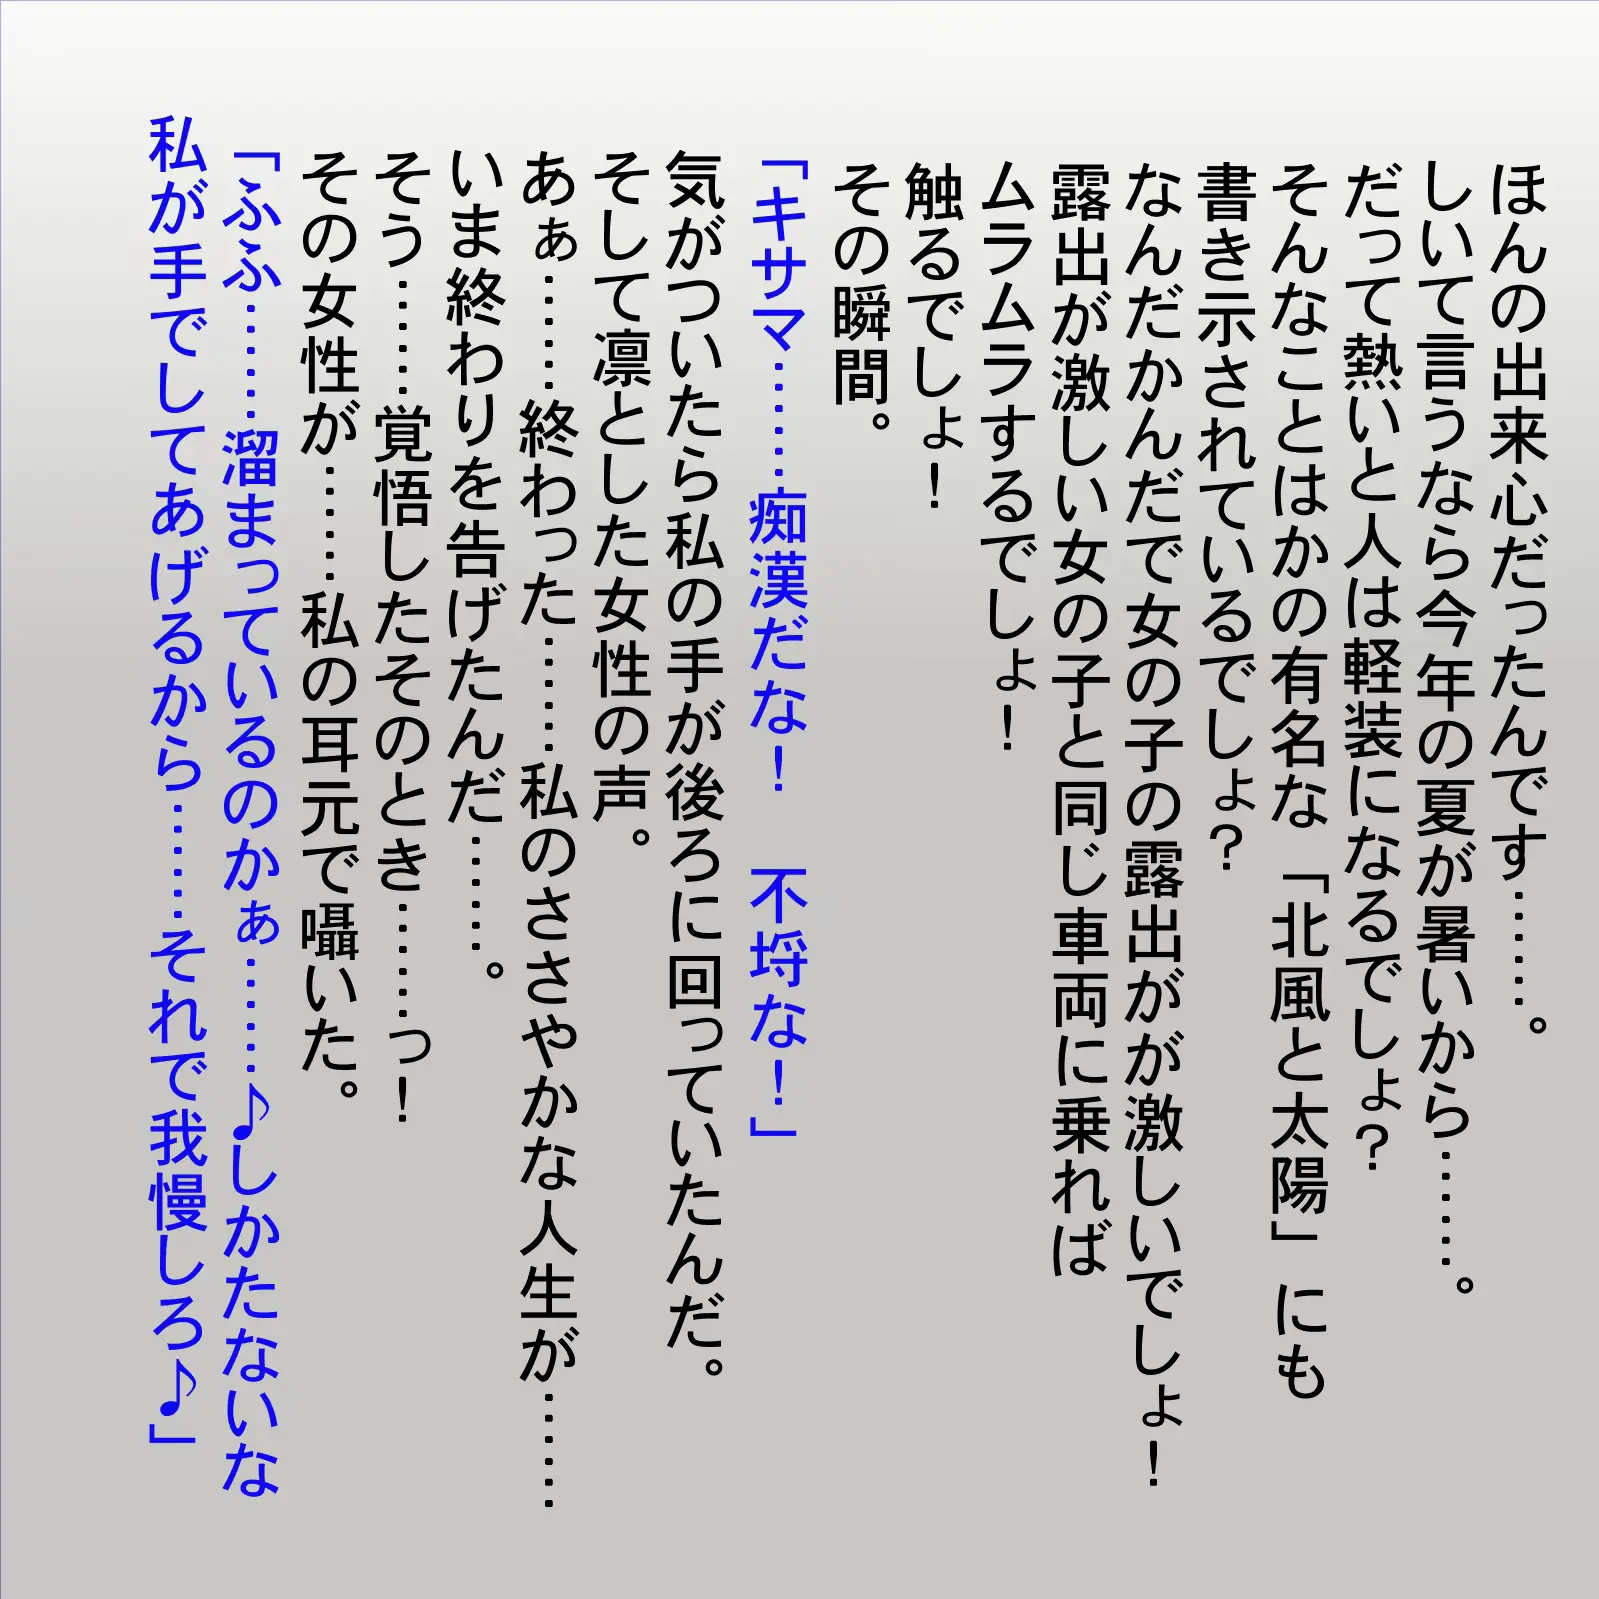 ほんの出来心だったんです……。
しいて言うなら今年の夏が暑いから……。
だって熱いと人は軽装になるでしょ？
そんなことはかの有名な「北風と太陽」にも
書き示されているでしょ？
なんだかんだで女の子の露出がが激しいでしょ！
露出が激しい女の子と同じ車両に乗れば
ムラムラするでしょ！
触るでしょ！
その瞬間。
「キサマ……痴漢だな！　不埒な！」
気がついたら私の手が後ろに回っていたんだ。
そして凛とした女性の声。
あぁ……終わった……私のささやかな人生が……
いま終わりを告げたんだ……。
そう……覚悟したそのとき……っ！
その女性が……私の耳元で囁いた。
「ふふ……溜まっているのかぁ……♪しかたないな
私が手でしてあげるから……それで我慢しろ♪」